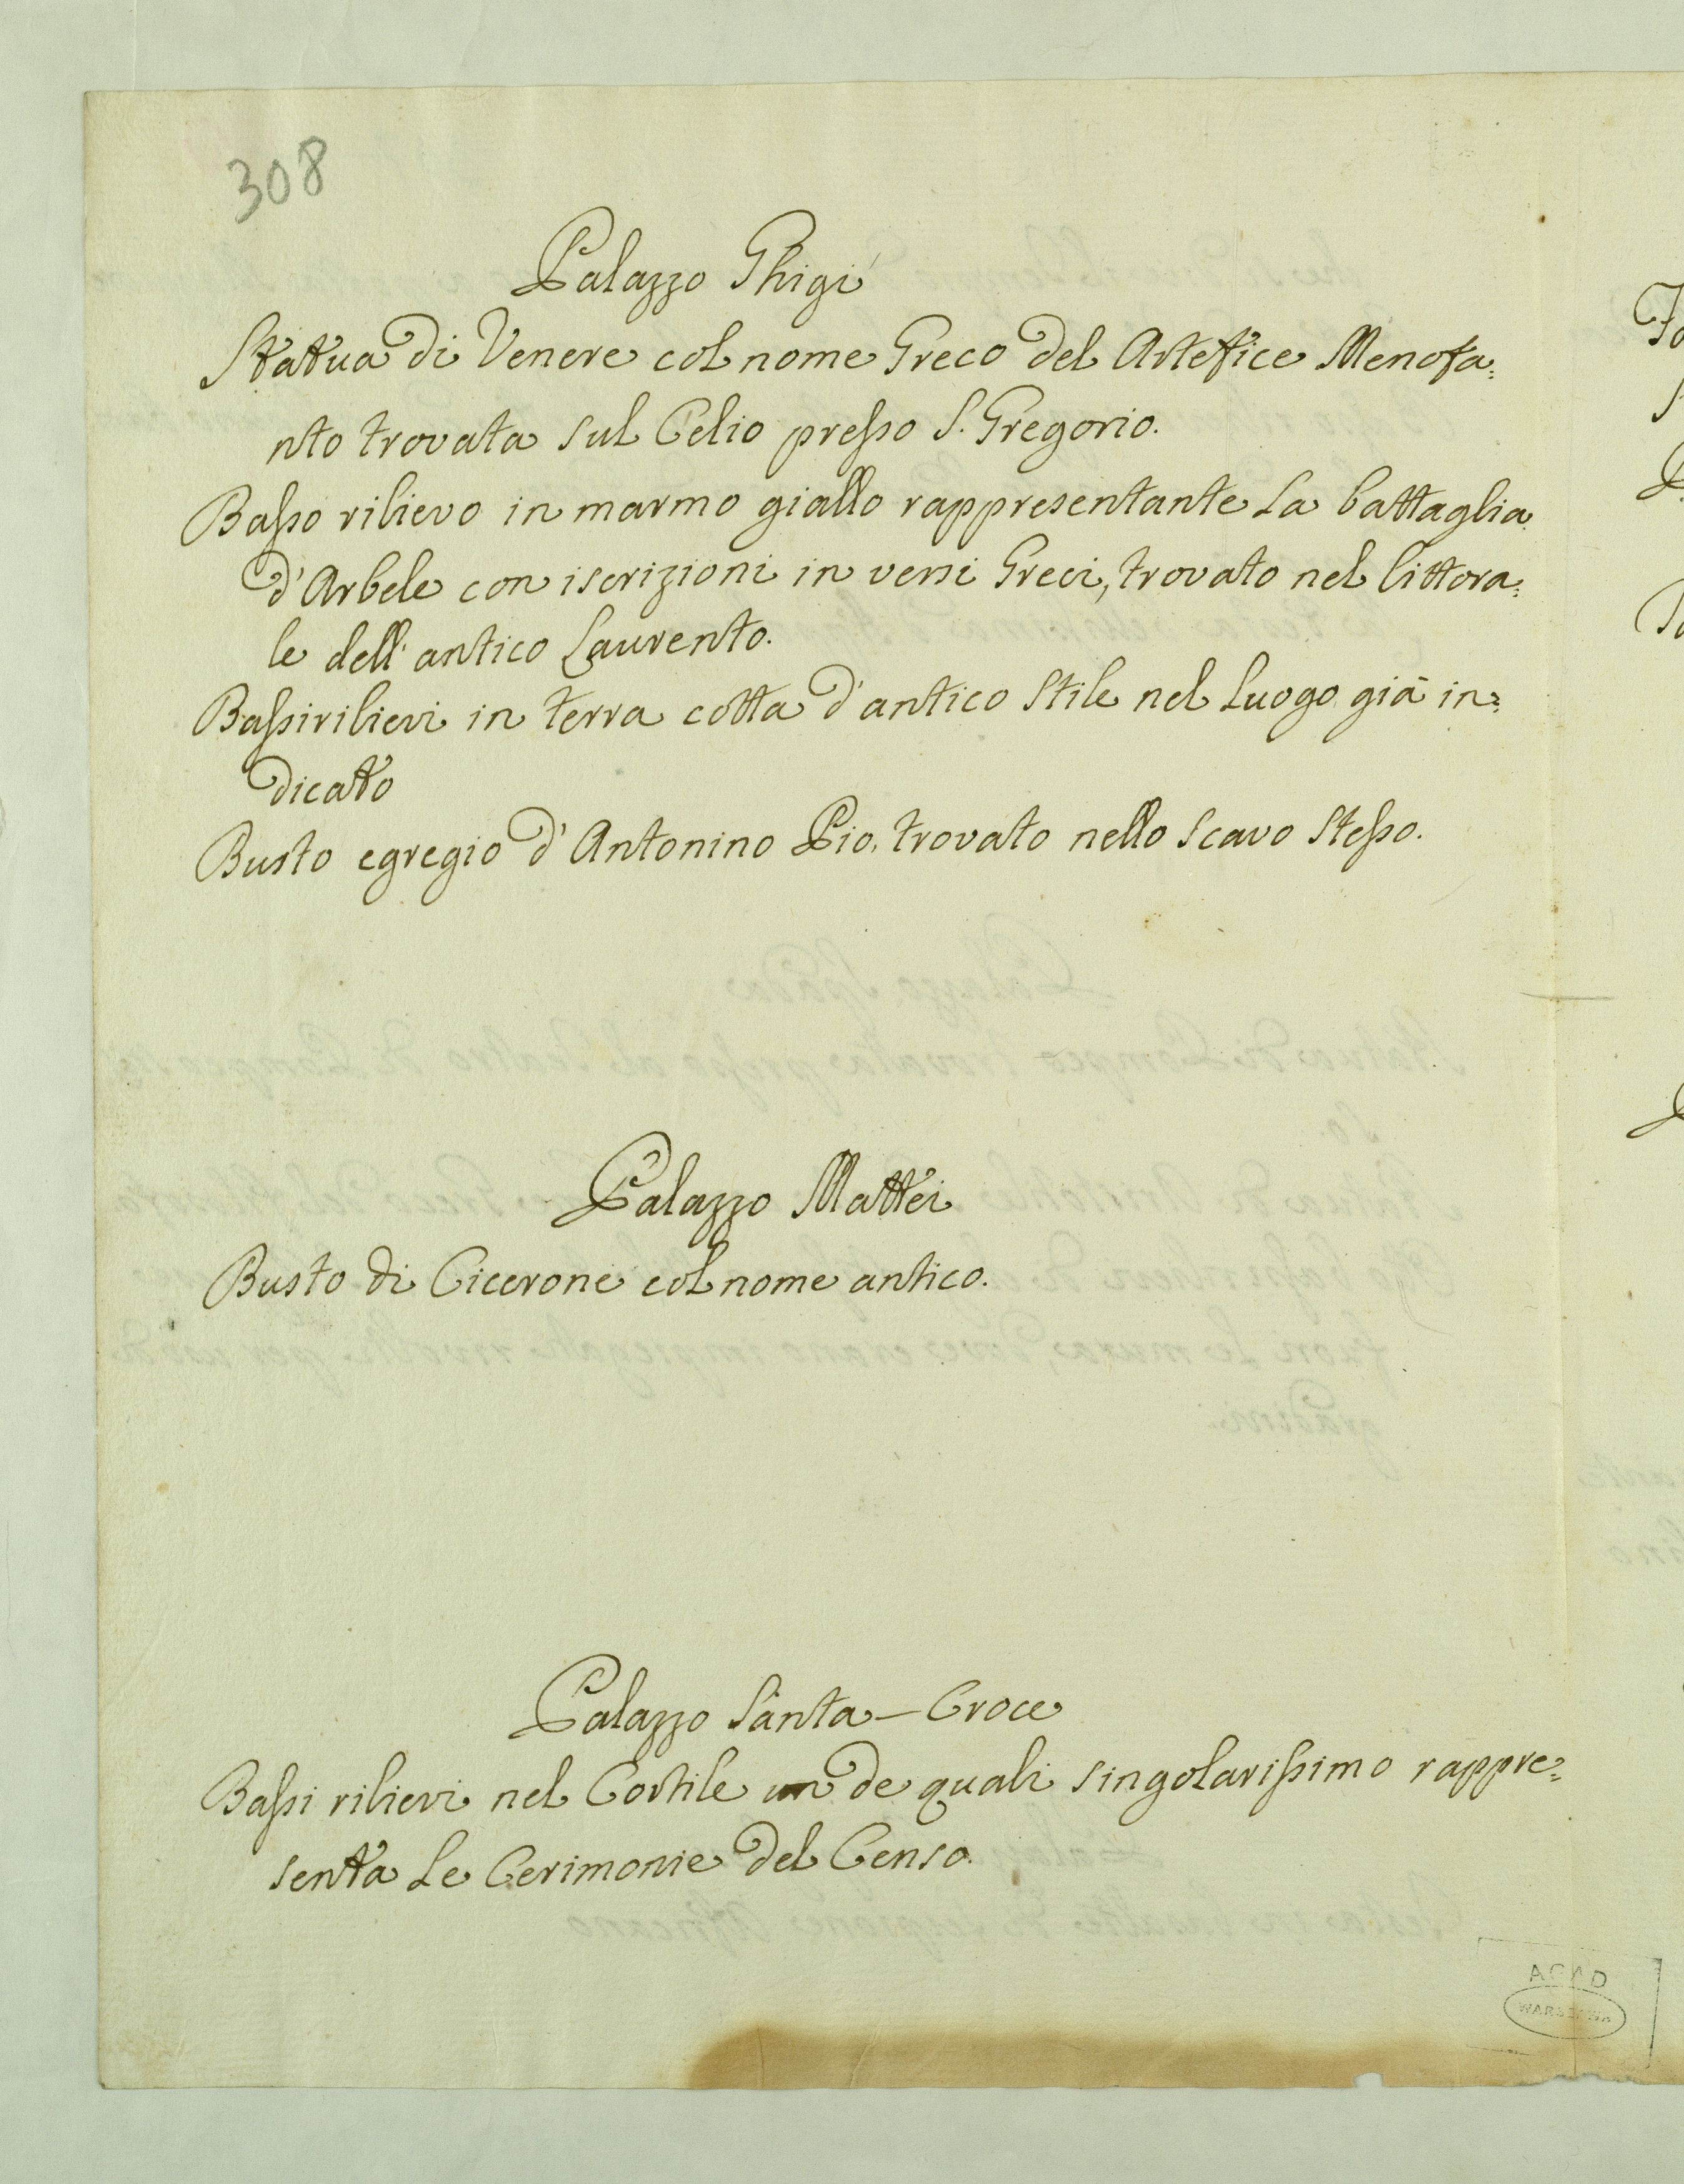 308
Palazzo Ghigi
Stattua di Venere col nome Greco del Artefice Menofa=
nto trovata sul Celio presso S. Gregorio.
Basso rilievo in marmo giallo rappresentante la battaglia
d'Arbele con iscrizioni in versi Greci, trovato nel littora=
le dell'antico Laurento.
Bassirilievi in terra cotta d'antico stile nel luogo già in=
dicatto
Busto egregio d'Antonino Pio, trovato nello scavo stesso.
Palazzo Mattei
Busto di Cicerone col nome antico.
Palazzo Santa-Croce
Bassi rilievi nel Cortile un de quali singolarissimo rappre=
sentta le Cerimonie del Censo.
ACAD
WARSZAWA